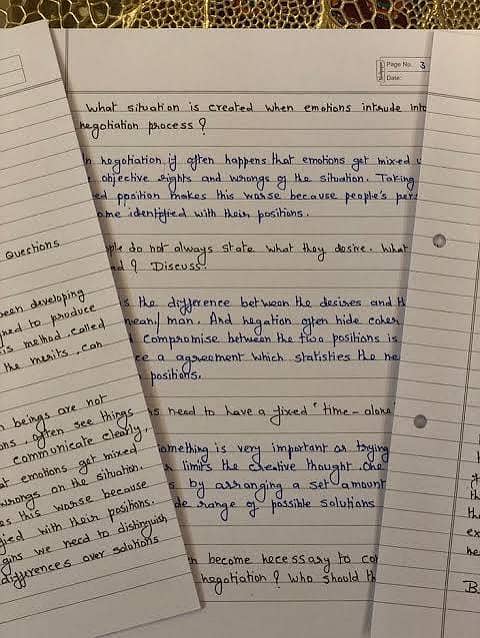 Page No. 3
Date:
What situation is created when emotions intrude into
negotiation process ?
In negotiation it often happens that emotions get mixed
objective rights and wrongs of the situation. Taking
ed ppoition makes this worse because people's per
ome identified with their positions.
ple do not always state what they desire. What
nd ? Discuss.
s the difference between the desires and th
mean/man. And negation often hide
compromise between the two positions is
ce a agreement which statisties the ne
positions.
s need to have a fixed "time - alone
omething is very important as trying
limits the creative thought. One
s by arranging a set amount
de range of possible solutions
n become necessary to co
negotiation ? Who should th
Questions
been developing
ned to produce
is method, called
the merits, can
n beings are not
ons, often see things
communicate clearly,
at emotions get mixed
wrongs on the situation.
es this worse because
fied with their positions.
gins we need to distinguish
differences over solutions
th
the
ex
he
B